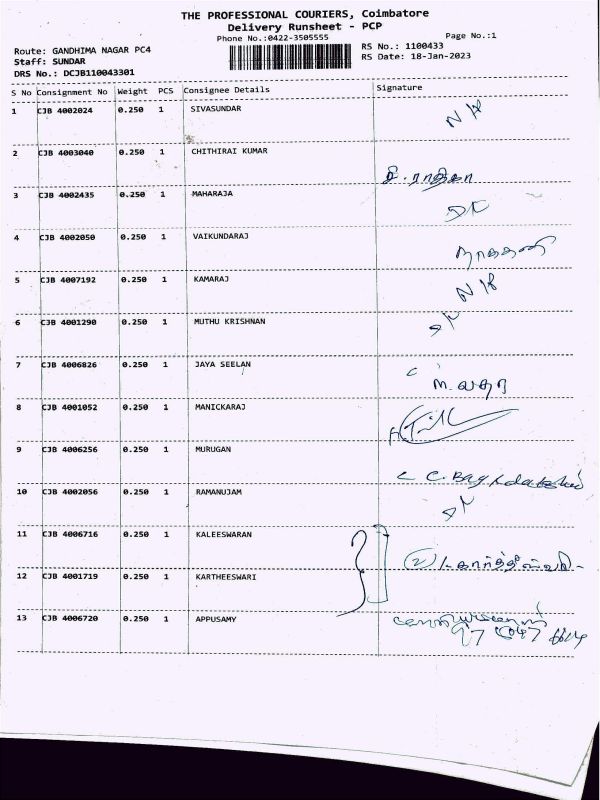 THE PROFESSIONAL COURIERS, Coimbatore
Delivery Runsheet - PCP
Phone No.:0422-3505555
Page No.:1
Route: GANDHIMA NAGAR PC4
RS No.: 1100433
Staff: SUNDAR
RS Date: 18-Jan-2023
DRS No.: DCJB110043301
S No Consignment No Weight PCS Consignee Details Signature
1 CJB 4002024 0.250 1 SIVASUNDAR
2 CJB 4003040 0.250 1 CHITHIRAI KUMAR
3 CJB 4002435 0.250 1 MAHARAJA
4 CJB 4002050 0.250 1 VAIKUNDARAJ
5 CJB 4007192 0.250 1 KAMARAJ
6 CJB 4001290 0.250 1 MUTHU KRISHNAN
7 CJB 4006826 0.250 1 JAYA SEELAN
8 CJB 4001052 0.250 1 MANICKARAJ
9 CJB 4006256 0.250 1 MURUGAN
10 CJB 4002056 0.250 1 RAMANUJAM
11 CJB 4006716 0.250 1 KALEESWARAN
12 CJB 4001719 0.250 1 KARTHEESWARI
13 CJB 4006720 0.250 1 APPUSAMY